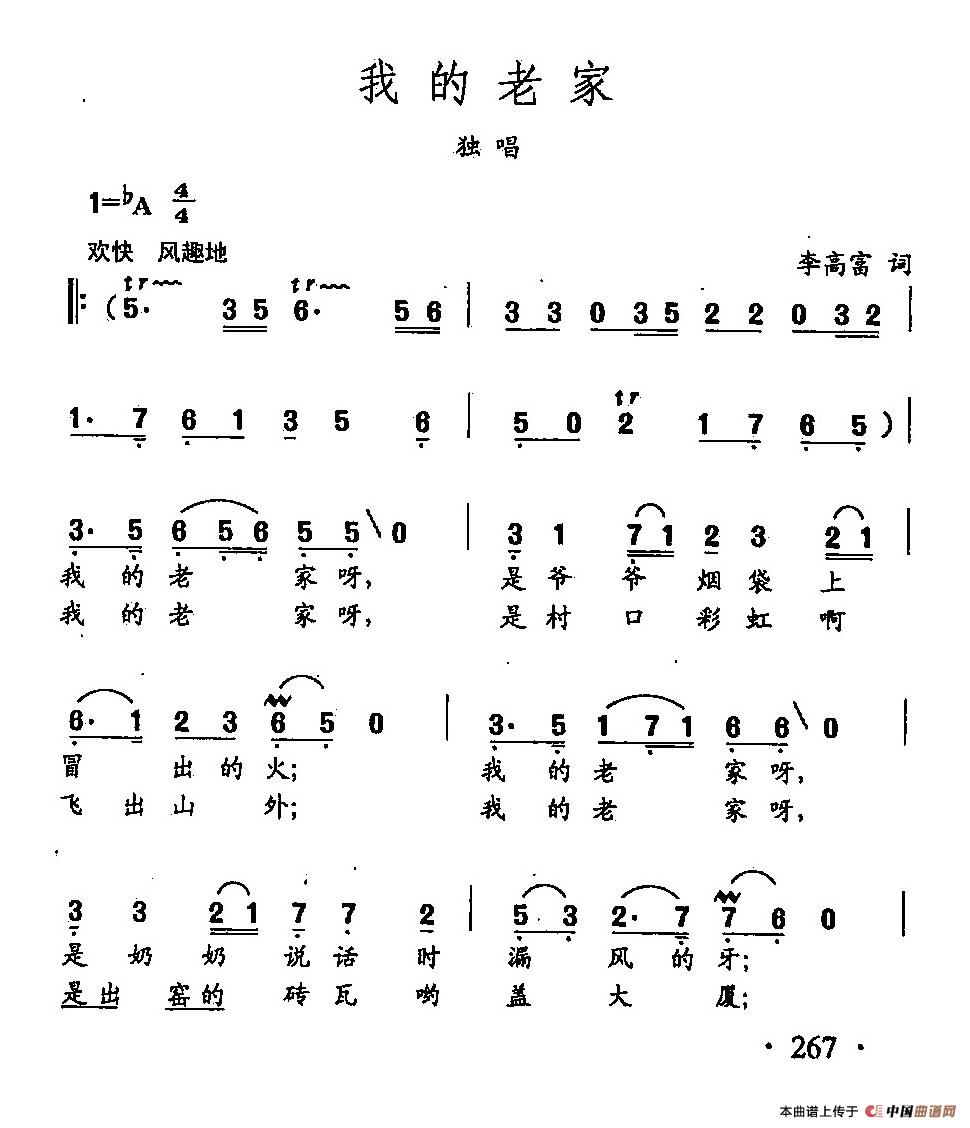 我的老家
独唱
1=♭A 4/4
欢快 风趣地
李高富 词
tr tr
(5· 35 6· 56 | 33 035 22 032 |
1·7 61 3 5 6 | 50 2 17 65) |
tr
3·5 656 55 0 | 3 1 71 2 3 21 |
我的老家呀, 是爷爷烟袋上
我的老家呀, 是村口彩虹啊
6·1 23 65 0 | 3·5 171 66 0 |
冒出的火; 我的老家呀,
飞出山外; 我的老家呀,
3 3 21 7 7 2 | 53 2·7 76 0 |
是奶奶说话时漏风的牙;
是出窑的砖瓦哟盖大厦;
· 267 ·
本曲谱上传于 中国曲谱网